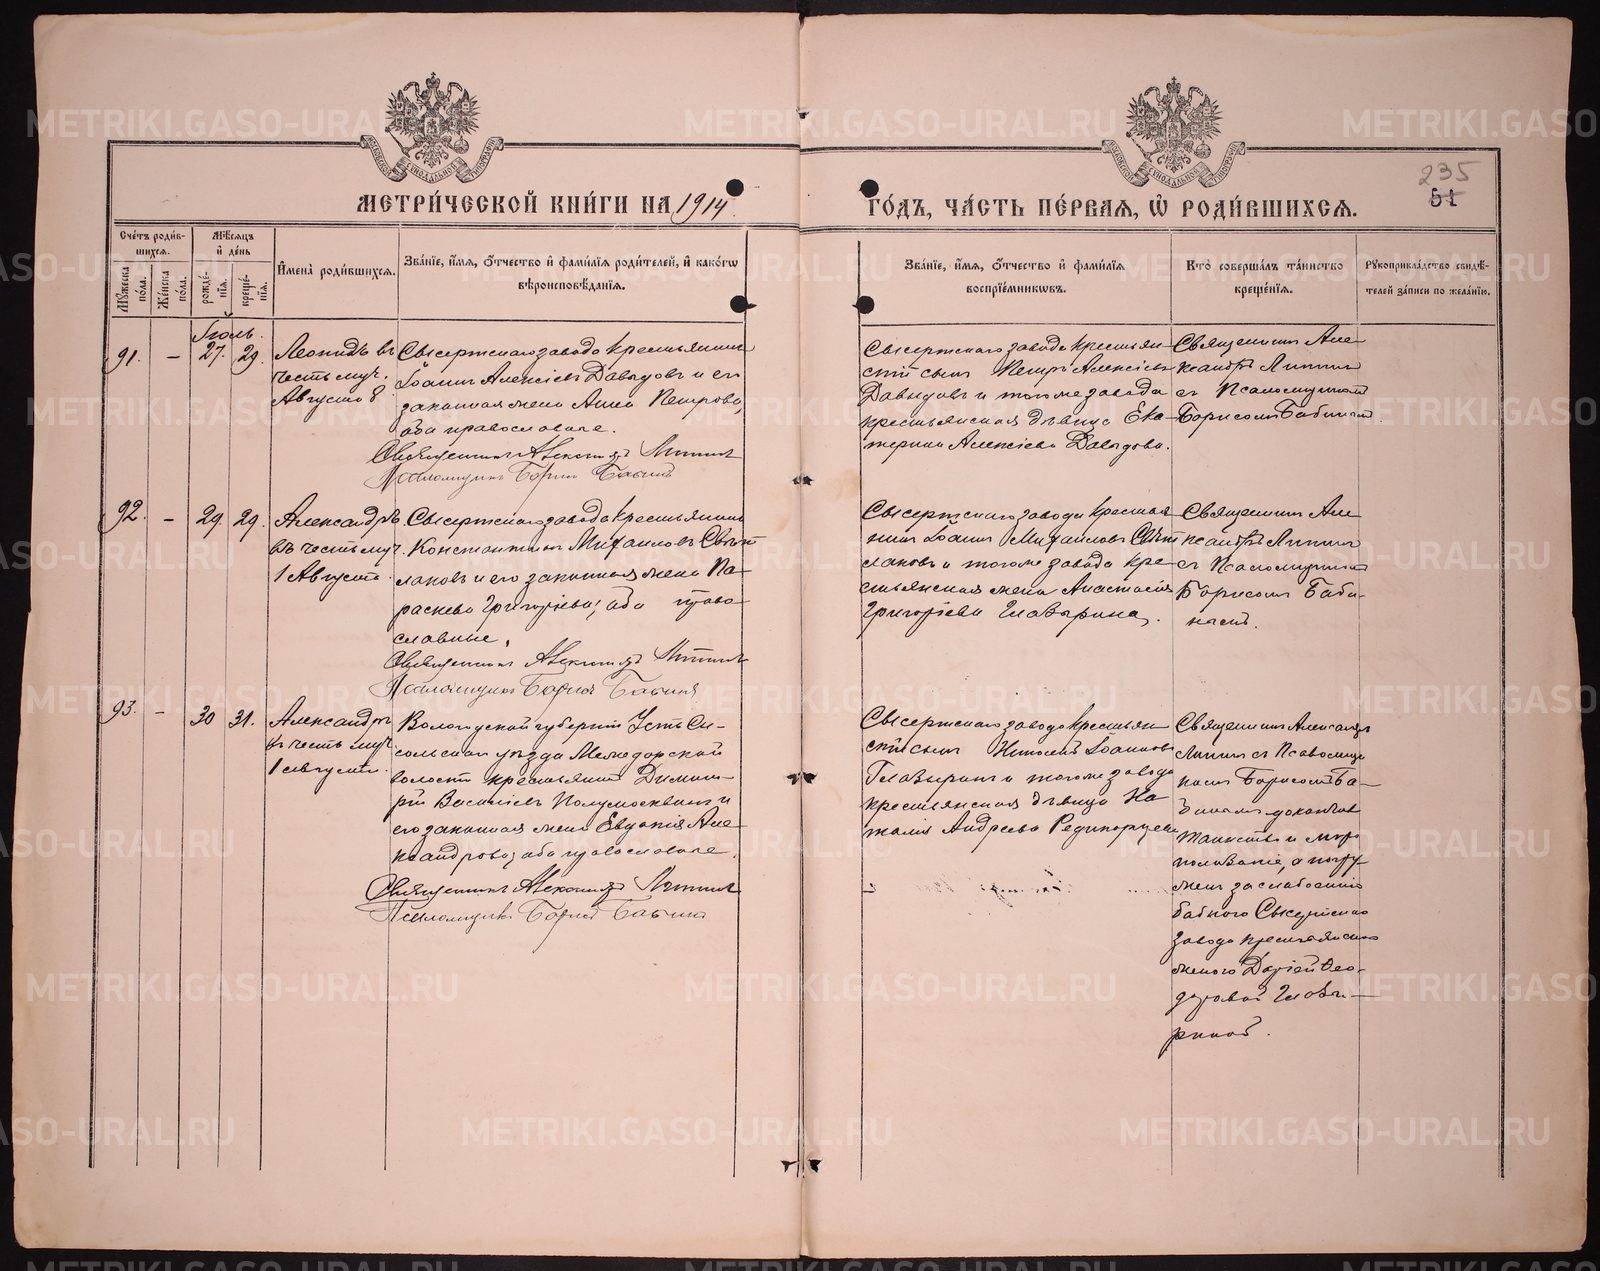 МЕТРИ́ЧЕСКОЙ КНИ́ГИ НА 1914
ГО́ДЪ, ЧА́СТЬ ПЕ́РВАЯ, Ѡ РОДИ́ВШИХСѦ.
235
51
Сче́тъ роди́в-
шихсѧ.
Мѣ́сѧцъ
и҆ де́нь
И҆мена̀ роди́вшихсѧ.
Зва́нїе, и҆́мѧ, ѻ҆́тчество и҆ фами́лїѧ роди́телей, и҆ како́гѡ
вѣроисповѣ́данїѧ.
Зва́нїе, и҆́мѧ, ѻ҆́тчество и҆ фами́лїѧ
воспрїе́мникѡвъ.
Кто̀ соверша́лъ та́инство
креще́нїѧ.
Рꙋкоприкла́дство свидѣ́-
телей за́писи по жела́нїю.
Мꙋ́жеска
по́ла.
Же́нска
по́ла.
рожде́-
нїѧ.
креще́-
нїѧ.
Іюль.
91. – 27. 29.
Леонидъ въ
честь муч.
Августа 8
Сысертскаго завода крестьянинъ
Іоаннъ Алексіевъ Давыдовъ и его
законная жена Анна Петрова,
оба православные.
Священникъ Александръ
Псаломщикъ Борисъ Бабинъ
Сысертскаго завода крестьян-
скій сынъ Петръ Алексіевъ
Давыдовъ и того же завода
крестьянская дѣвица Ека-
терина Алексіева Давыдова.
Священникъ Але-
ксандръ
съ Псаломщикомъ
Борисомъ Бабинымъ
92. – 29. 29.
Александръ
въ честь муч.
1 Августа.
Сысертскаго завода крестьянинъ
Константинъ Михаиловъ
и его законная жена Па-
раскева Григоріева, оба право-
славные.
Священникъ Александръ
Псаломщикъ Борисъ Бабинъ
Сысертскаго завода крестья-
нинъ Іоаннъ Михаиловъ
и того же завода кре-
стьянская жена Анастасія
Григоріева Главырина.
Священникъ Але-
ксандръ
съ Псаломщикомъ
Борисомъ Баби-
нымъ.
93. – 30 31.
Александръ
въ честь муч.
1 августа.
Вологодской губерніи Усть Сы-
сольскаго уѣзда
волости крестьянинъ Димит-
рій Василіевъ Полумосквинъ и
его законная жена Евдокія Але-
ксандрова, оба православные.
Священникъ Александръ
Псаломщикъ Борисъ Бабинъ
Сысертскаго завода крестьян-
скій сынъ Николай Іоанновъ
Главыринъ и того же завода
крестьянская дѣвица На-
талія Андреева Редикорцева
Священникъ Александръ
съ Псаломщи-
комъ Борисомъ Ба-
бинымъ
таинство и мѵро-
помазаніе, а погру-
женъ за слабостію
бабкою Сысертскаго
завода крестьянскою
женою Даріей Ѳео-
доровой Главы-
риной.
METRIKI.GASO-URAL.RU